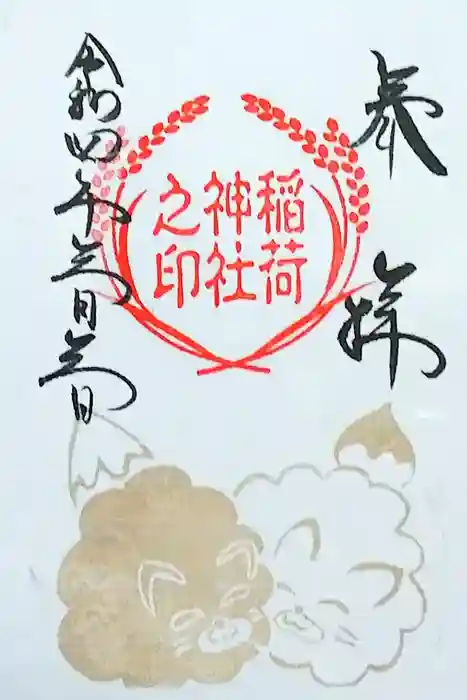 奉拝
稲荷
神社
之印
令和四年 月 日